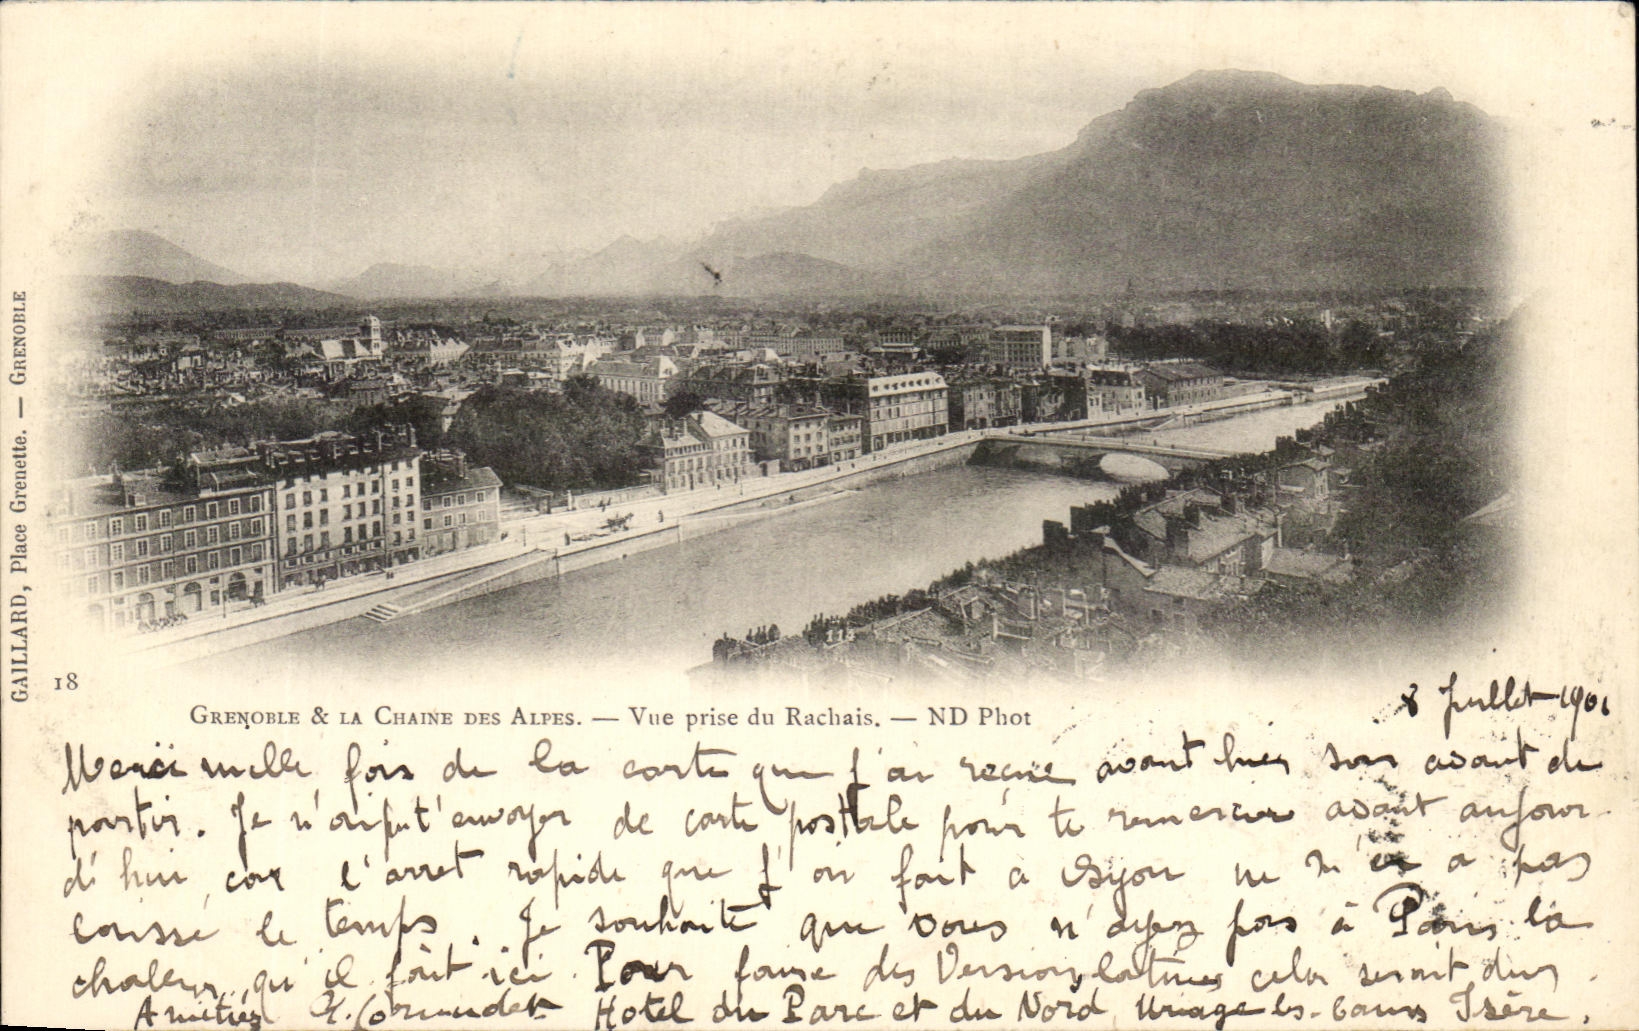 GAILLARD, Place Grenette. — GRENOBLE
118
18
GRENOBLE & LA CHAINE DES ALPES. — Vue prise du Rachais. — ND Phot
8 Juillet 1901
Merci mille fois de la carte que j'ai reçue avant hier soir avant de
partir. Je n'ai pu t'envoyer de carte postale pour te remercier avant aujour
d'hui car l'arret rapide que j'ai fait a Lyon ne m'en a pas
laissé le temps. Je souhaite que vous n'ayez pas à Paris la
chaleur qu'il fait ici. Pour faire des Versions latines cela serait dur.
Amitiés Hotel du Parc et du Nord Uriage-les-bains Isère.